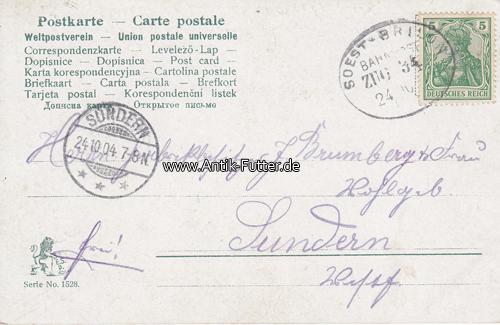 Postkarte — Carte postale
Weltpostverein — Union postale universelle
Correspondenzkarte — Levelező-Lap —
Dopisnice — Dopisnica — Post card —
Karta korespondencyjna — Cartolina postale
Briefkaart — Carta postala — Brefkort
Tarjeta postal — Korespondenční listek
Дописна карта — Открытое письмо
SOEST-BRILON
BAHNPOST
ZUG 34
24
5 5
DEUTSCHES REICH
SUNDERN
24.10.04 7-8N
www.Antik-Futter.de
J. Brumberg & Frau
Sundern
Westf
frei!
Serie No. 1528.